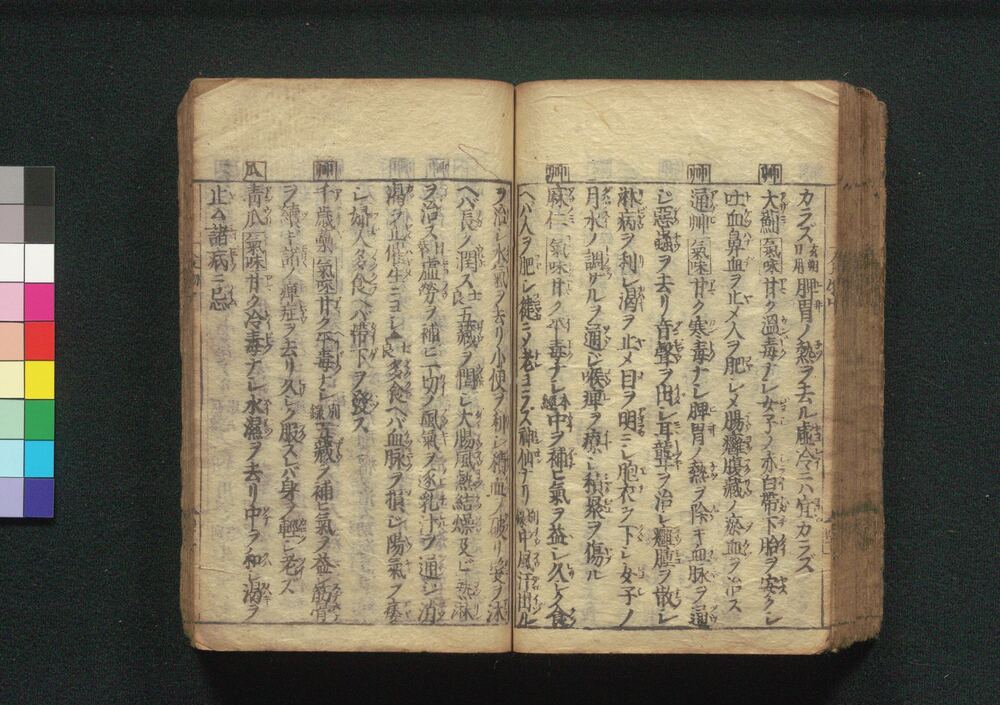 カラズ日用脾胃ノ熱ヲ去ル虚冷ニハ宜カラズ
艸
大薊氣味甘ク温毒ナシ女子ノ赤白帯下胎ヲ安クシ
吐血鼻血ヲ止メ人ヲ肥シメ腸癰腹藏ノ瘀血ヲ治ス
艸
通艸氣味甘ク寒毒ナシ脾胃ノ熱ヲ除キ血脉ヲ通
シ惡蟲ヲ去リ音聲ヲ出シ耳聾ヲ治シ癰腫ヲ散シ
淋病ヲ利シ渇ヲ止メ目ヲ明ニシ胞衣ヲ下シ女子ノ
月水ノ調ザルヲ通シ喉痺ヲ療シ積聚ヲ傷ル
艸
麻仁氣味甘ク平毒ナシ本經中ヲ補ヒ氣ヲ益シ久シク食
ヘバ人ヲ肥シ健ニメ老ヨラズ神仙ナリ別録中風汗出ル
ヲ治シ水氣ヲ去リ小便ヲ利シ積血ノ破リ髮ヲ沐
ヘバ長ク潤ス士良五藏ヲ潤シ大腸風熱結燥及ビ熱淋
ヲ治ス日華虚勞ヲ補ヒ一切ノ風氣ヲ逐乳汁ヲ通シ消
渇ヲ止催生ニヨシ▲士良多食ヘバ血脉ヲ損シ陽氣ヲ痿
シ婦人多食ヘバ帯下ヲ發ス
艸
千歳虆氣味甘ク平毒ナシ別録五藏ヲ補ヒ氣ヲ益シ筋骨
ヲ續キ諸ノ痺症ヲ去リ久シク服スレバ身ヲ輕シ老ス
瓜
青瓜氣味甘ク冷毒ナシ水濕ヲ去リ中ヲ和シ渇ヲ
止ム諸病ニ忌